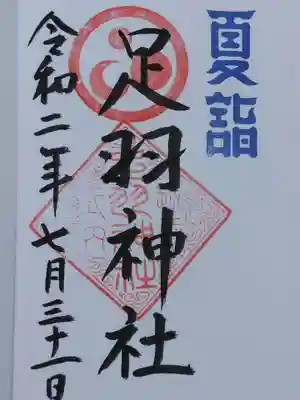 夏詣
足羽神社
令和二年七月三十一日